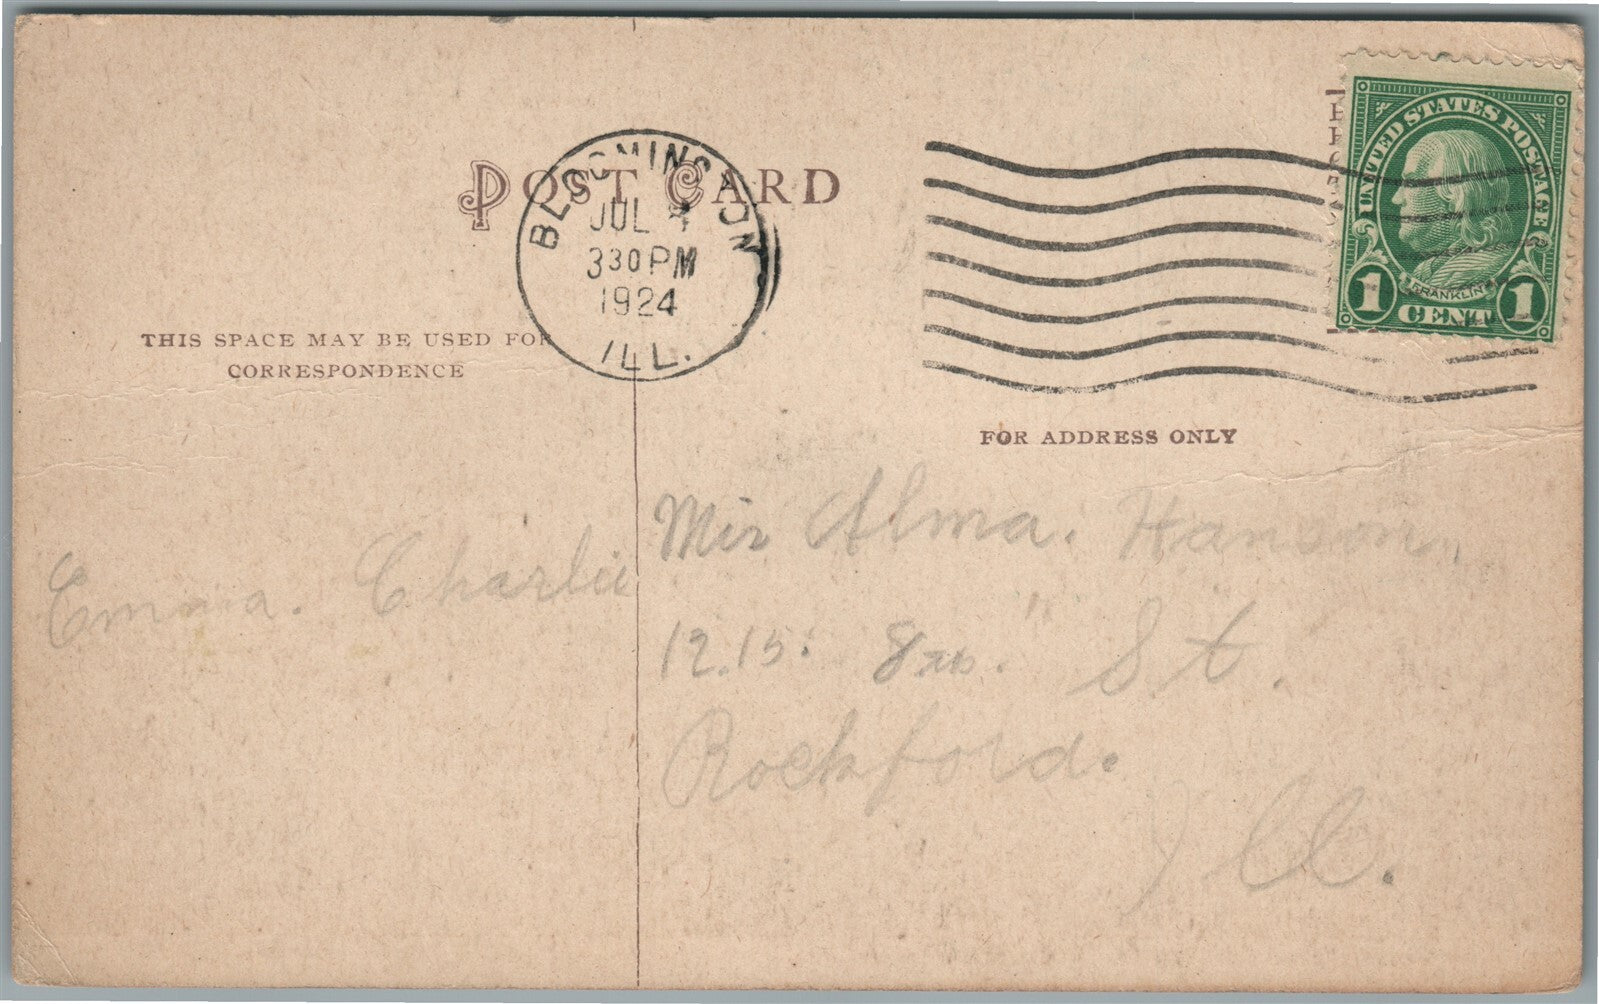 POST CARD
BLOOMINGTON
JUL
330 PM
1924
ILL.
UNITED STATES POSTAGE
FRANKLIN
1 CENT 1
THIS SPACE MAY BE USED FOR
CORRESPONDENCE
FOR ADDRESS ONLY
Emma. Charlie
Mis Alma. Hanson
12.15. St.
Rockford.
Ill.